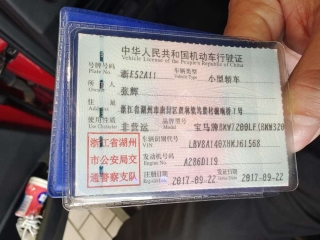 中华人民共和国机动车行驶证
Vehicle License of the People's Republic of China
号牌号码 浙E52A11 车辆类型 小型轿车
Plate No. Vehicle Type
所有人 张辉
Owner
住址
Address
使用性质 非营运 品牌型号 宝马牌
Use Character Model
浙江省湖州
市公安局交
通警察支队
车辆识别代号
VIN
发动机号码 A286D119
Engine No.
注册日期 2017-09-22 发证日期 2017-09-22
Register Date Issue Date